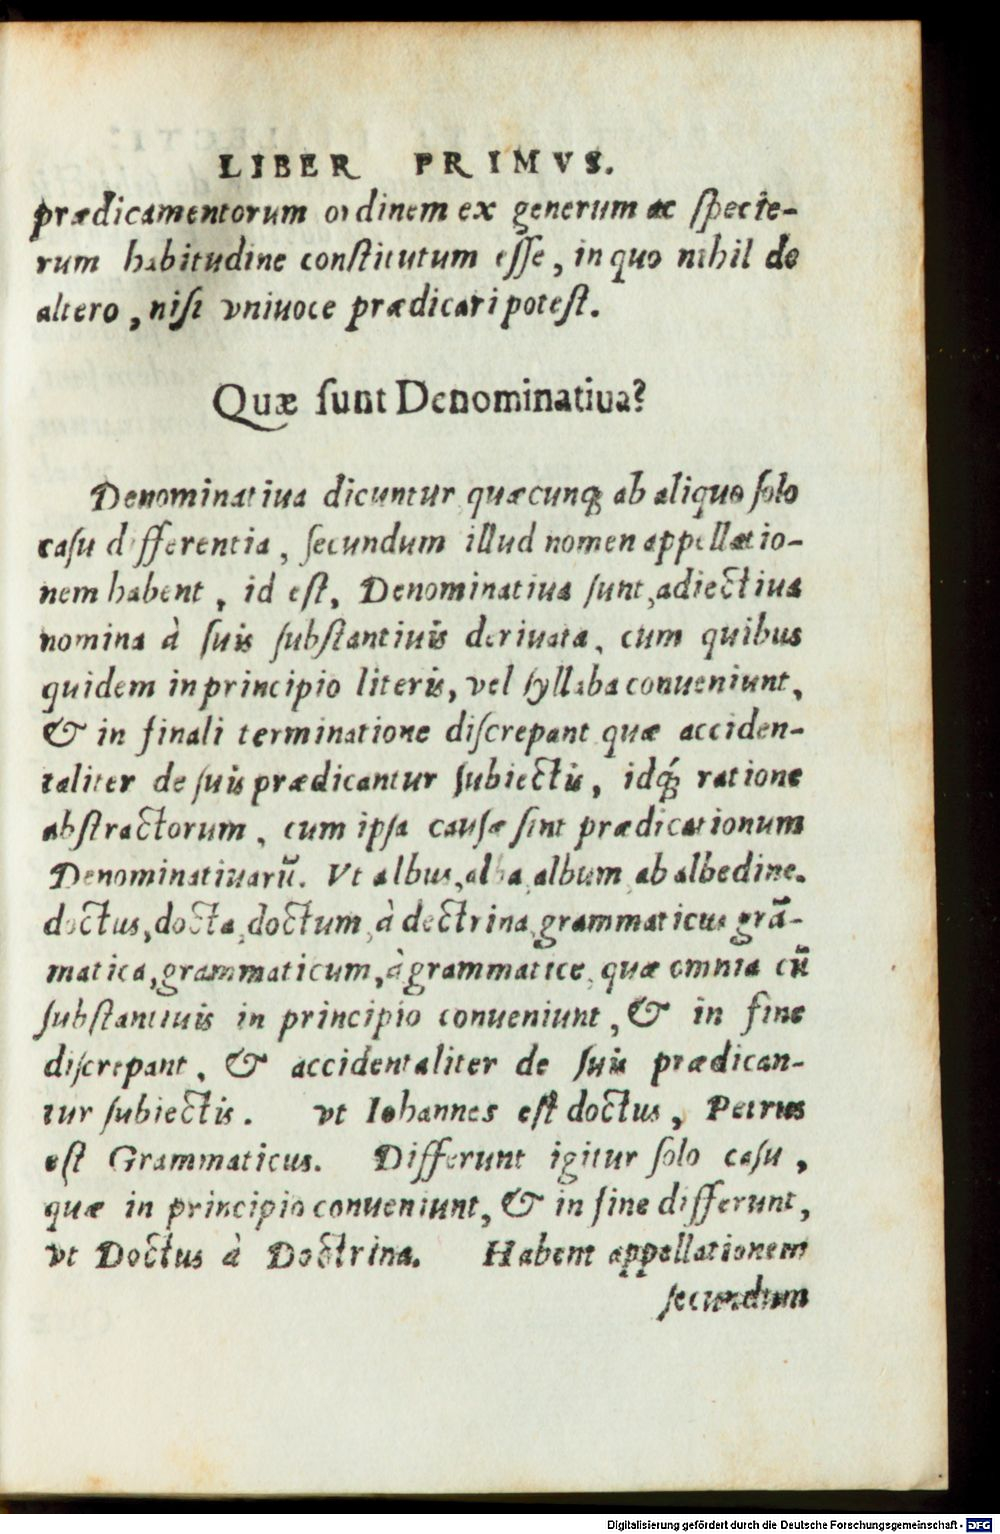 LIBER PRIMVS.
prædicamentorum ordinem ex generum ac specie-
rum habitudine constitutum esse, in quo nihil de
altero, nisi vniuoce prædicari potest.
Quæ sunt Denominatiua?
Denominatiua dicuntur quæcunq; ab aliquo solo
casu differentia, secundum illud nomen appellatio-
nem habent, id est, Denominatiua sunt, adiectiua
nomina à suis substantiuis deriuata, cum quibus
quidem in principio literis, vel syllaba conueniunt,
& in finali terminatione discrepant quæ acciden-
taliter de suis prædicantur subiectis, idq́; ratione
abstractorum, cum ipsa causæ sint prædicationum
Denominatiuarū. Vt albus, alba, album, ab albedine.
doctus, docta, doctum, à dectrina, grammaticus grā-
matica, grammaticum, à grammatice, quæ omnia cū
substantiuis in principio conueniunt, & in fine
discrepant, & accidentaliter de suis prædican-
tur subiectis. vt Iohannes est doctus, Petrus
est Grammaticus. Differunt igitur solo casu,
quæ in principio conueniunt, & in fine differunt,
vt Doctus à Doctrina. Habent appellationem
secundum
Digitalisierung gefördert durch die Deutsche Forschungsgemeinschaft - DFG